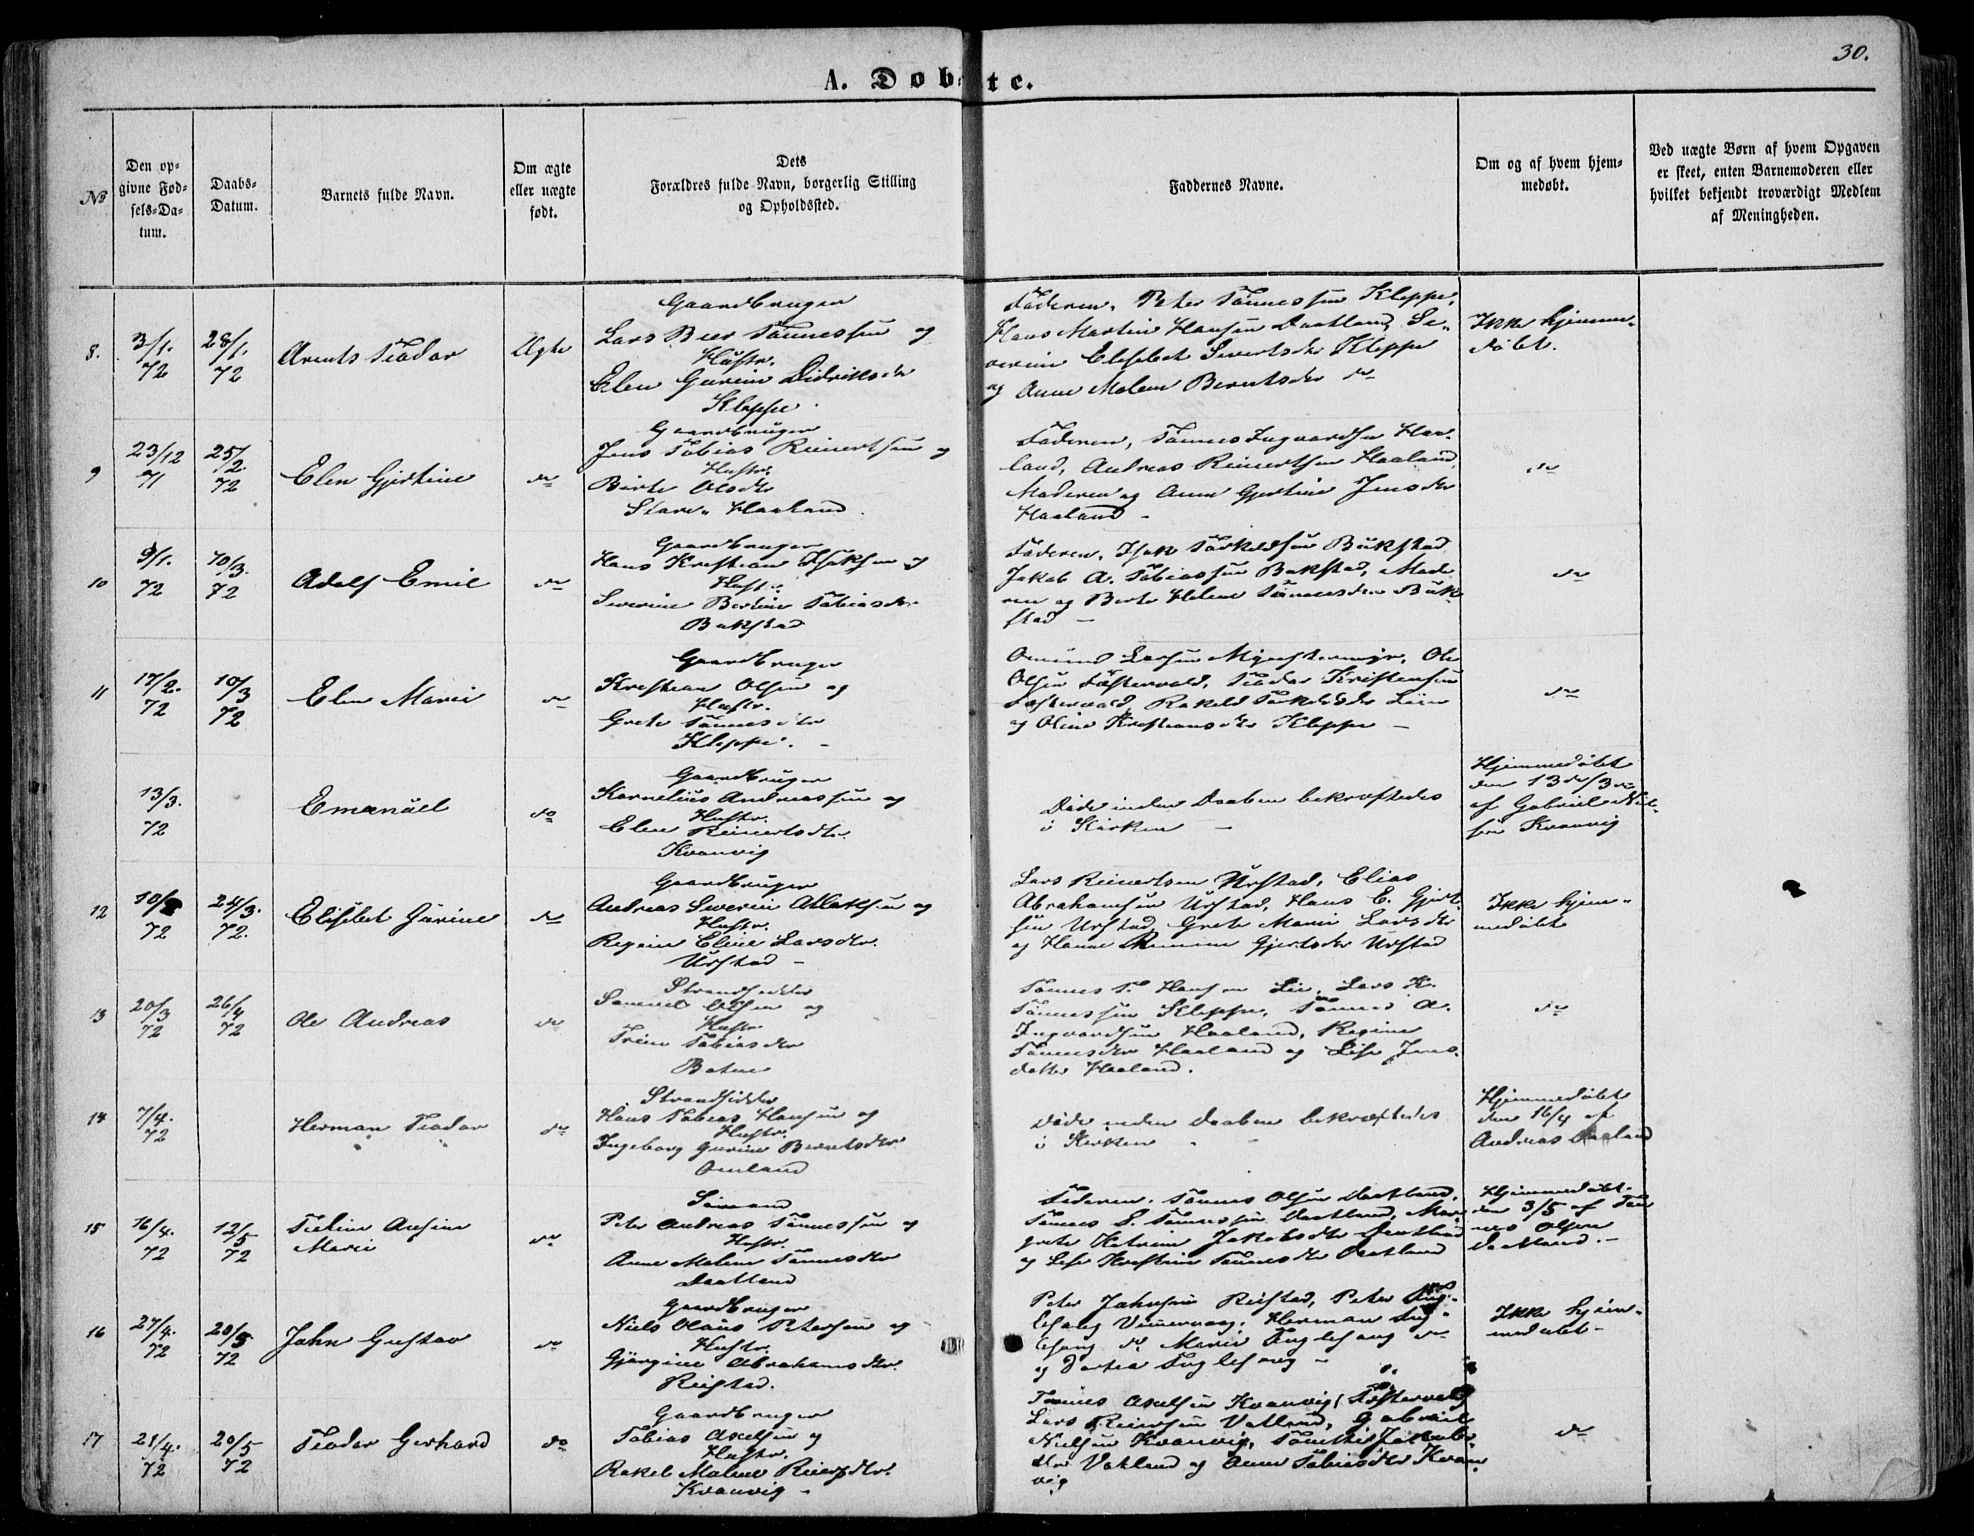 30.
A. Døbte.
No
Den opgivne Fødsels-Datum.
Daabs-Datum.
Barnets fulde Navn.
Om ægte eller uægte født.
Dets Forældres fulde Navn, borgerlig Stilling og Opholdssted.
Faddernes Navne.
Om og af hvem hjemmedøbt.
Ved uægte Børn af hvem Opgaven er skeet, enten Barnemoderen eller hvilket bekjendt troværdigt Medlem af Menigheden.
8.
3/1. 72
28/1. 72
Arents Teodor
Ægte
Gaardbruger
Lars Beer Tønnessen og
Hustr.
Elen Gurine Didriksdr
Kleppe.
Faderen, Peter Tønnessen Kleppe,
Hans Martin Hansen Daatland, Se-
verine Elisebet Sivertsdr Kleppe
og Anne Malene Berntsdr do
Ikke hjemme-
døbt.
9
23/12 71
25/2. 72
Elen Gjertine
do
Gaardbruger
Jens Tobias Reinertsen og
Hustr.
Birte Olsdtr
Haaland.
Faderen, Tønnes Ingvardsen Haa-
land, Andreas Reinertsen Haaland,
Moderen og Anne Gjertine Jensdtr
Haaland -
do
10
9/1. 72
10/3. 72
Adolf Emil
do
Gaardbruger
Hans Kristian Isaksen og
Hustr.
Severine Bertine Tobiasdr.
Bukstad
Faderen, Isak Torkelsen Bukstad
Jakob A. Tobiassen Bukstad, Mode-
ren og Berte Helene Tønnesdr Buk-
stad -
do
11
17/2. 72
10/3 72
Elen Marie
do
Gaardbruger
Kristian Olsen og
Hustr.
Grete Tønnesdtr
Kleppe. -
Omund Larsen, Ole
Olsen Fæstervold, Teodor Kristensen
Fæstervold, Rakel
og Oline Kristiansdtr Kleppe -
do
13/3. 72
Emanüel
do
Gaardbruger
Kornelius Andreassen og
Hustr.
Elen Reinertsdtr.
Kvanvig
Døde inden Daaben bekræftedes
i Kirken -
Hjemmedøbt
den 13de/3 72
af Gabriel Niel-
sen Kvanvig
12
10/3 72
24/3. 72.
Elisebet Gurine
do
Gaardbruger
Andreas Severin Atlaksen og
Hustr.
Regine Eline Larsdtr.
Urstad -
Lars Reinertsen Urstad, Elias
Abrahamsen Urstad, Hans E. Gjert-
sen Urstad, Grete Marie Larsdtr
og Hanne Gjertsdtr Urstad
Ikke hjem-
medøbt
13
20/3 72
26/4 72
Ole Andreas
do
Strandsidder
Samuel Olsen og
Hustr
Trine Tobiasdtr
Botne
Tønnes T. Hansen Lie, Lars K.
Tønnessen Kleppe, Tønnes A.
Ingvardsen Haaland, Regine
Tønnesdtr Haaland og Lise Jens-
datter Haaland.
do
14
7/4. 72
Herman Teodor
do
Strandsidder
Hans Tobias Hansen og
Hustr.
Ingeborg Gurine Berntsdtr.
Omland
Døde inden Daaben bekræftedes
i Kirken
Hjemmedøbt
den 16/4 af
Andreas Haaland
15
16/4. 72
12/5 72
Marie
do
Sømand
Peter Andreas Tønnessen og
Hustr.
Anne Malene Tønnesdtr
Daatland
Faderen, Tønnes Olsen Daatland,
Tønnes S. Tønnessen Daatland, Mar-
grete Katrine Jakobsdtr Daatland
og Lise Kristine Tønnesdtr Daatland
Hjemmedøbt
den 3/5 af Tøn-
nes Olsen
Daatland. -
16
27/4. 72
20/5 72
John Gustav
do
Gaardbruger
Niels Olaus Petersen og
Hustr.
Gjørgine Abrahamsdtr.
Reistad.
Peter Johnsen Reistad, Peter Fug-
lesang, Herman Fug-
lesang do, Marie Fuglesang do
og Fuglesang -
Ikke hjem-
medøbt -
17
21/4. 72
20/5 72
Teodor Gerhard
do
Gaardbruger
Tobias Axelsen og
Hustr.
Rakel Malene Reiersdtr.
Kvanvig -
Tønnes Axelsen Kvanvig
Lars Reiersen Vatland, Gabriel
Nielsen Kvanvig, Jakobs-
dtr Vatland og Anne Tobiasdtr Kvan-
vig
do